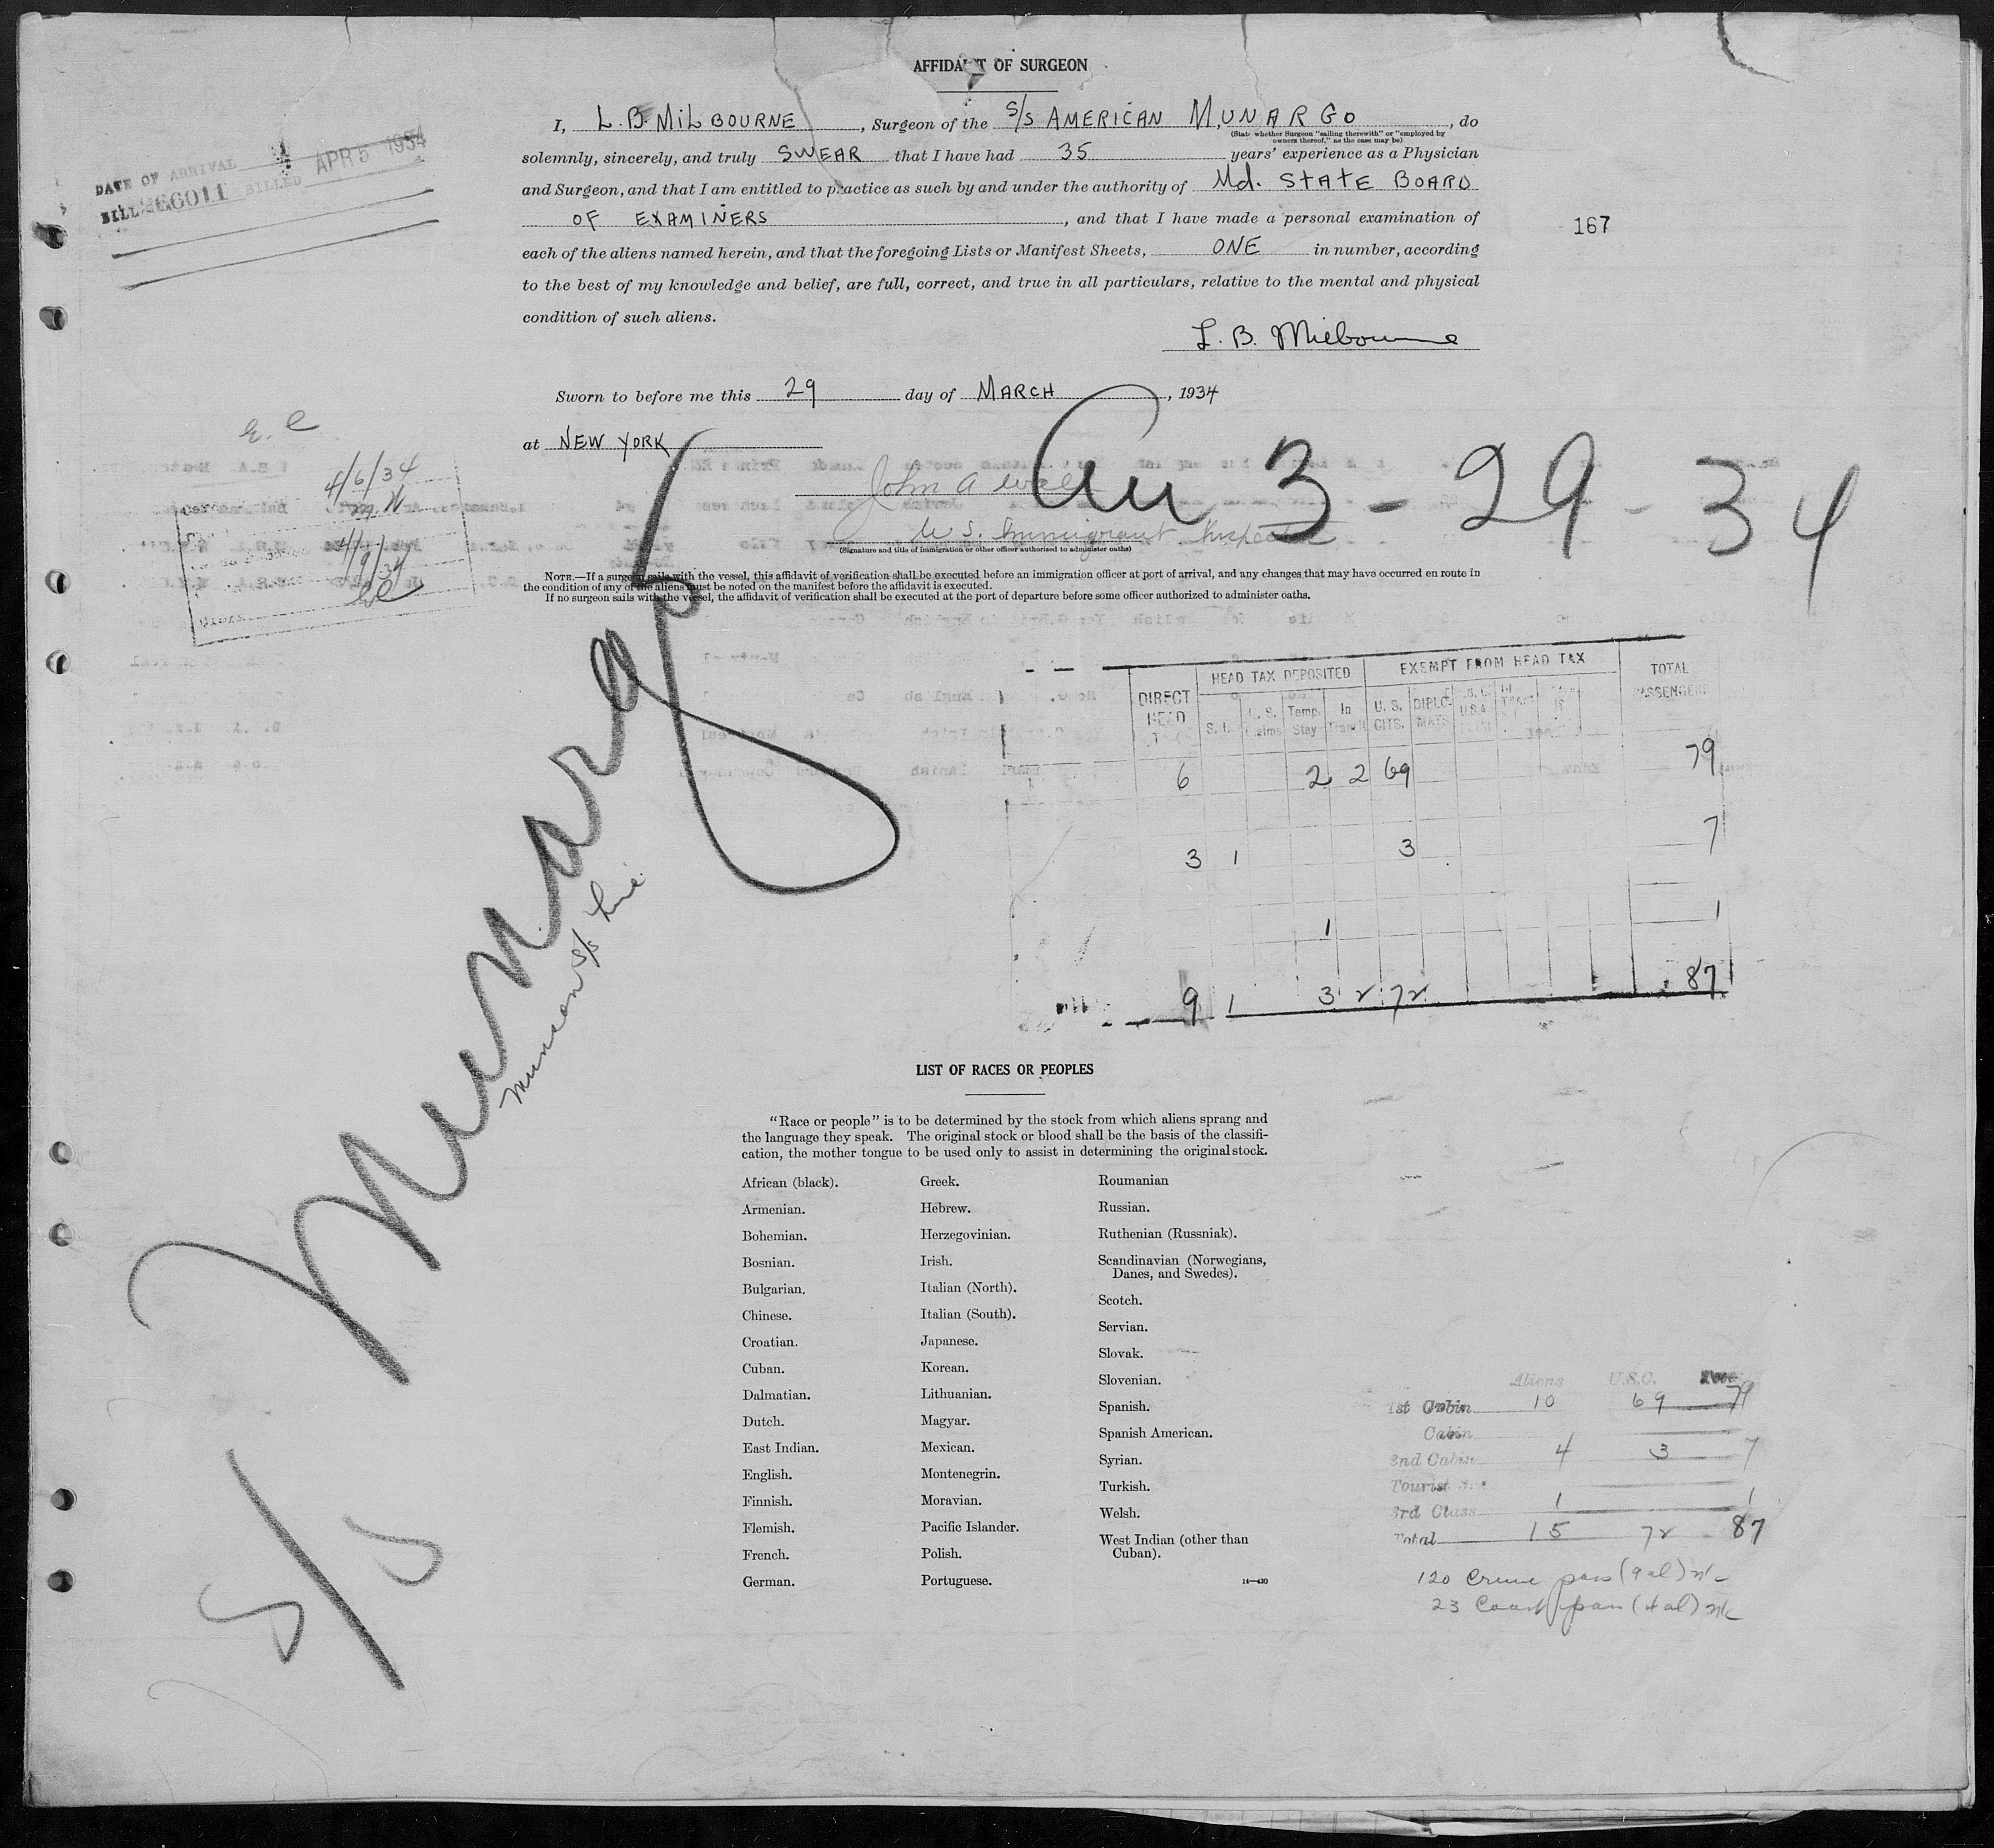 AFFIDAVIT OF SURGEON
I, L. B. MILBOURNE, Surgeon of the S/S AMERICAN MUNARGO, do
(State whether Surgeon "sailing therewith" or "employed by
owners thereof," as the case may be)
solemnly, sincerely, and truly SWEAR that I have had 35 years' experience as a Physician
and Surgeon, and that I am entitled to practice as such by and under the authority of Md. STATE BOARD
OF EXAMINERS, and that I have made a personal examination of
each of the aliens named herein, and that the foregoing Lists or Manifest Sheets, ONE in number, according
to the best of my knowledge and belief, are full, correct, and true in all particulars, relative to the mental and physical
condition of such aliens.
L. B. Milbourne
DATE OF ARRIVAL
BILL 66011 BILLED APR 5 1934
167
Sworn to before me this 29 day of MARCH, 1934
at NEW YORK
John A
U S. Immigrant Inspector
(Signature and title of immigration or other officer authorized to administer oaths)
3-29-34
4/6/34
4/9/34
NOTE.—If a surgeon sails with the vessel, this affidavit of verification shall be executed before an immigration officer at port of arrival, and any changes that may have occurred en route in
the condition of any of the aliens must be noted on the manifest before the affidavit is executed.
If no surgeon sails with the vessel, the affidavit of verification shall be executed at the port of departure before some officer authorized to administer oaths.
S/S Munargo
Munson S/S Line
HEAD TAX DEPOSITED EXEMPT FROM HEAD TAX TOTAL PASSENGERS
DIRECT HEAD Temp. Stay In Transit U. S. CITS. DIPLO-MATS
6 2 2 69 79
3 1 3 7
1 1
9 1 3 2 72 87
LIST OF RACES OR PEOPLES
"Race or people" is to be determined by the stock from which aliens sprang and
the language they speak. The original stock or blood shall be the basis of the classifi-
cation, the mother tongue to be used only to assist in determining the original stock.
African (black).
Armenian.
Bohemian.
Bosnian.
Bulgarian.
Chinese.
Croatian.
Cuban.
Dalmatian.
Dutch.
East Indian.
English.
Finnish.
Flemish.
French.
German.
Greek.
Hebrew.
Herzegovinian.
Irish.
Italian (North).
Italian (South).
Japanese.
Korean.
Lithuanian.
Magyar.
Mexican.
Montenegrin.
Moravian.
Pacific Islander.
Polish.
Portuguese.
Roumanian
Russian.
Ruthenian (Russniak).
Scandinavian (Norwegians,
Danes, and Swedes).
Scotch.
Servian.
Slovak.
Slovenian.
Spanish.
Spanish American.
Syrian.
Turkish.
Welsh.
West Indian (other than
Cuban).
14—430
Aliens U.S.C.
1st Cabin 10 69 79
Cabin
2nd Cabin 4 3 7
Tourist
3rd Class 1 1
Total 15 72 87
120 Cruise pass (9 al)
23 Coast pass (4 al)